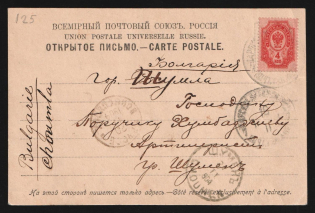 125
ВСЕМІРНЫЙ ПОЧТОВЫЙ СОЮЗЪ, РОССІЯ
UNION POSTALE UNIVERSELLE RUSSIE.
ОТКРЫТОЕ ПИСЬМО.—CARTE POSTALE.
Болгарія
гор. Шумла
Господину
Поручику
гр. Шуменъ
Bulgarie
Choumla
На этой сторонѣ пишется только адресъ—Côté réservé exclusivement à l'adresse.